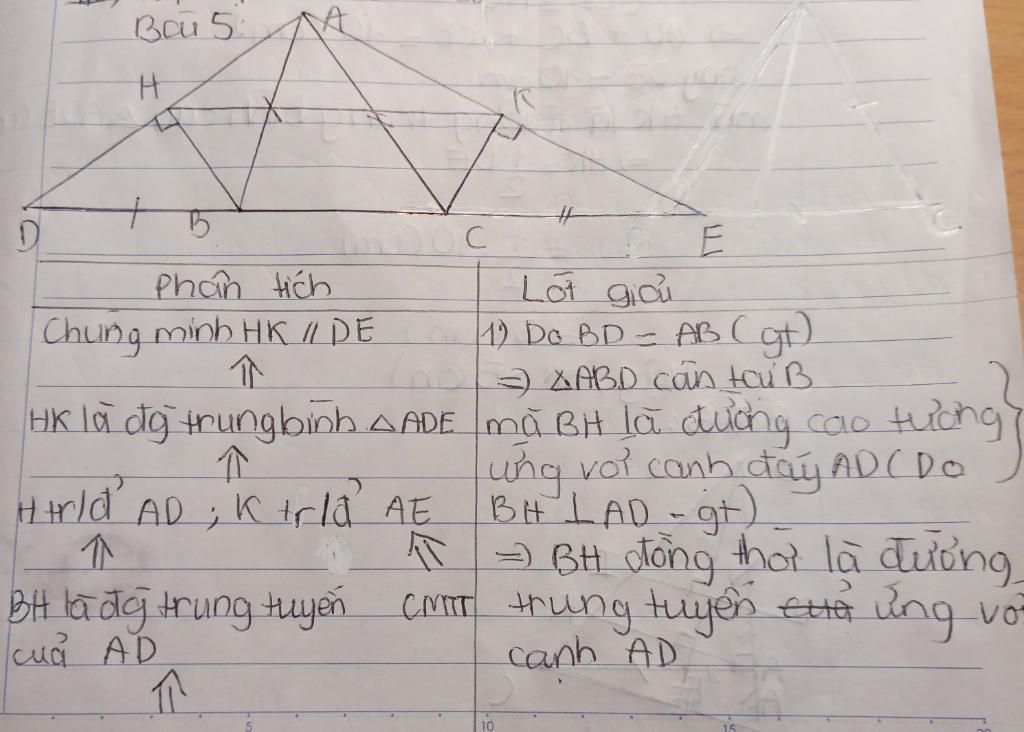 Bài 5:
A
H
K
D
B
C
E
Phân tích
Lời giải
Chứng minh HK // DE
⇑
HK là đg trung bình △ADE
⇑
H tr/đ' AD ; K tr/đ' AE
⇑ ⇑
BH là đg trung tuyến CMTT
của AD
⇑
1) Do BD = AB (gt)
=> △ABD cân tại B
mà BH là đường cao tương
ứng với cạnh đáy AD (Do
BH ⊥ AD - gt)
=> BH đồng thời là đường
trung tuyến của ứng với
cạnh AD
5 10 15 20